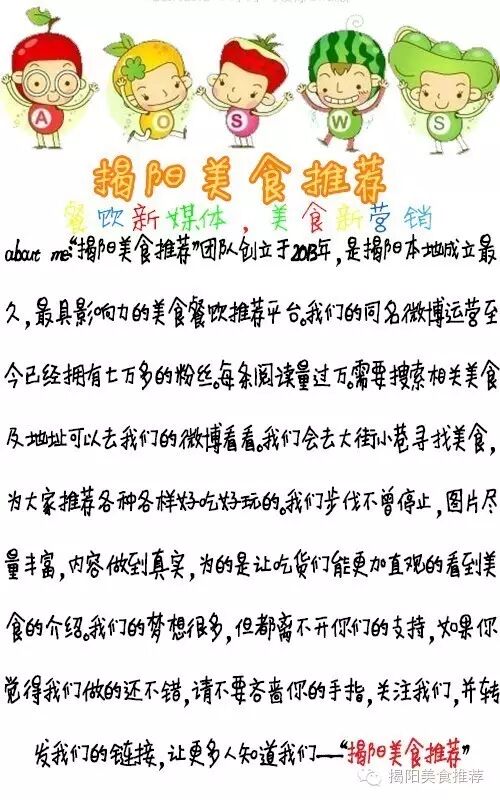 A O S W S
揭阳美食推荐
餐饮新媒体，美食新营销
about me:“揭阳美食推荐”团队创立于2013年，是揭阳本地成立最
久，最具影响力的美食餐饮推荐平台。我们的同名微博运营至
今已经拥有七万多的粉丝。每条阅读量过万。需要搜索相关美食
及地址可以去我们的微博看看。我们会去大街小巷寻找美食，
为大家推荐各种各样好吃好玩的。我们步伐不曾停止，图片尽
量丰富，内容做到真实，为的是让吃货们能更加直观的看到美
食的介绍。我们的梦想很多，但都离不开你们的支持，如果你
觉得我们做的还不错，请不要吝啬你的手指，关注我们，并转
发我们的链接，让更多人知道我们——“揭阳美食推荐”
揭阳美食推荐